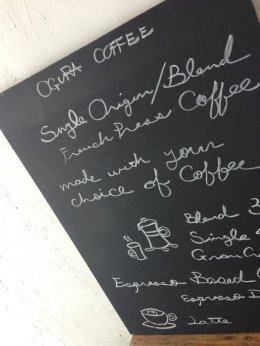 OGURA COFFEE
Single Origin/Blend
French Press Coffee
made with your
choice of Coffee
Blend 3
Single
Gran Cu
Espresso Based
Espresso
Latte